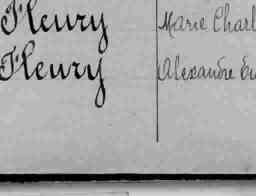 Fleury Marie Charl
Fleury Alexandre Eu